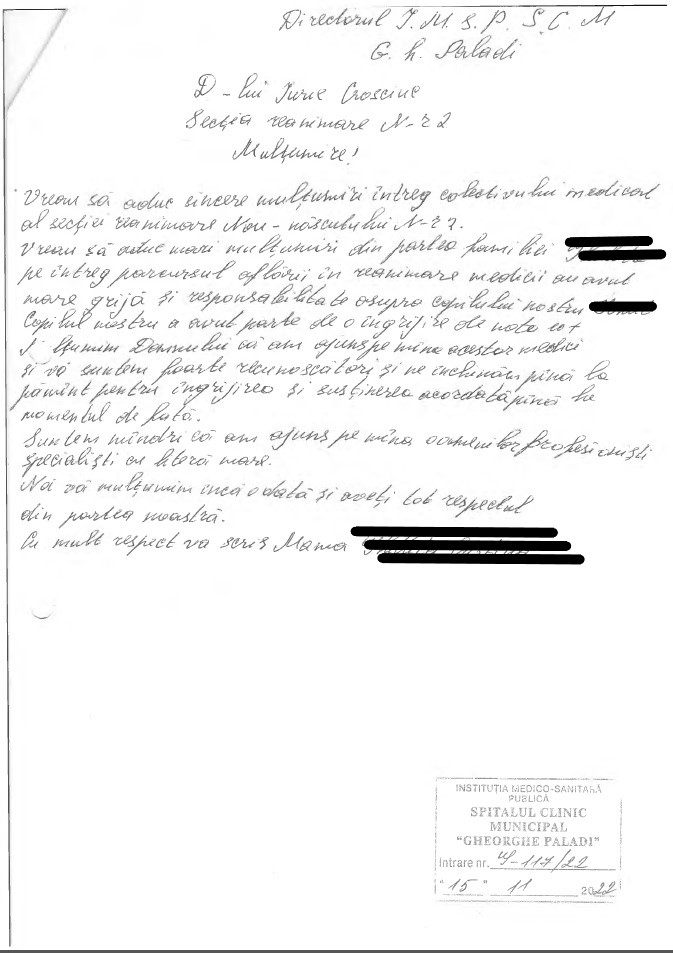 Directorul I.M.S.P. S.C.M
G.h. Paladi
D-lui Iurie Crosciuc
Secția reanimare N-r 2
Mulțumire!
Vreau să aduc sincere mulțumiri întreg colectivului medical
al secției reanimare Nou-născutului N-r 2.
Vreau să aduc mari mulțumiri din partea familiei
pe întreg parcursul aflării în reanimare medicii au avut
mare grijă și responsabilitate asupra copilului nostru
Copilul nostru a avut parte de o îngrijire de nota 10+
Îi mulțumim Domnului că am ajuns pe mîna acestor medici
și vă suntem foarte recunoscători și ne închinăm pînă la
pămînt pentru îngrijirea și susținerea acordată pînă la
momentul de față.
Suntem mîndri că am ajuns pe mîna oamenilor profesioniști
specialiști cu literă mare.
Noi vă mulțumim încă odată și aveți tot respectul
din partea noastră.
Cu mult respect va scris Mama
INSTITUȚIA MEDICO-SANITARĂ
PUBLICĂ
SPITALUL CLINIC
MUNICIPAL
"GHEORGHE PALADI"
Intrare nr. 117/22
"15" 11 2022